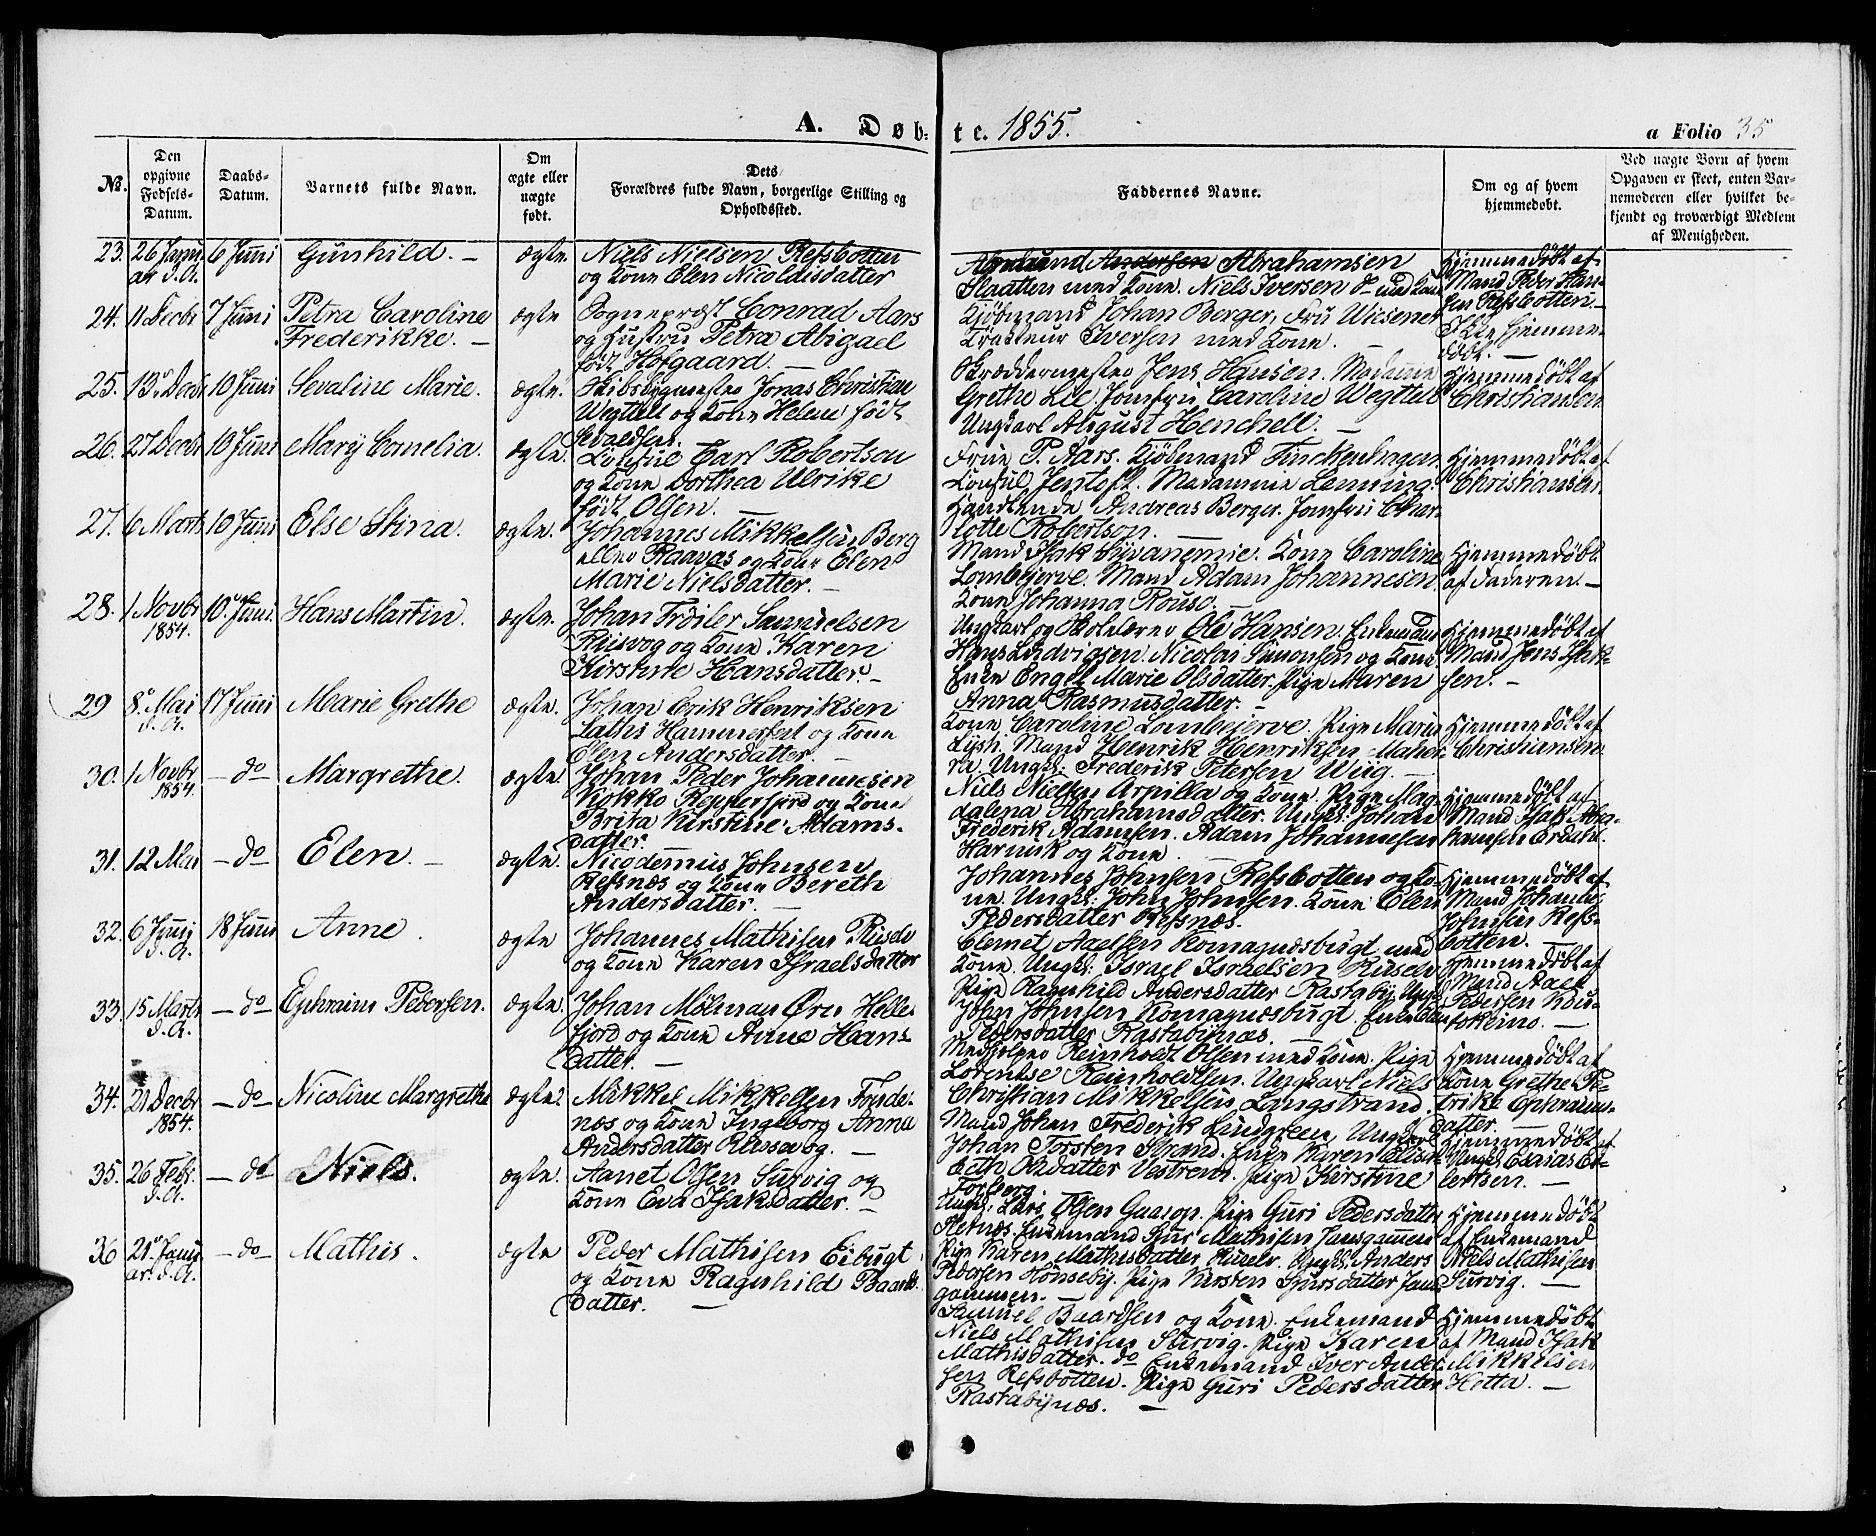 A. Døb-
te. 1855.
a Folio 35
No.
Den opgivne Fødsels-Datum.
Daabs-Datum.
Barnets fulde Navn.
Om ægte eller uægte født.
Dets Forældres fulde Navn, borgerlige Stilling og Opholdssted.
Faddernes Navne.
Om og af hvem hjemmedøbt.
Ved uægte Børn af hvem Opgaven er skeet, enten Barnemoderen eller hvilket bekjendt og troværdigt Medlem af Menigheden.
23. 26 Janu- 6 Juni Gunhild. – ægte. Niels Nielsen Refsbotten
ar d.A. og Kone Elen Nicolaisdatter
Amund Andersen Abrahamsen
Slaatten med Kone. Niels Iversen do med Kone
Hjemmedøbt af
Mand Peder Han-
sen Refsbotten.–
24. 11 Decbr 7 Juni Petra Caroline ægte Sogneprest Conrad Aars
Frederikke. – og Hustru Petra Abigael
født Hofgaard. –
Kjøbmand Johan Berger, Fru Wiesener
Tracteur Iversen med Kone. –
Ikke hjemme-
døbt. –
25. 13de Decbr 10 Juni Sevaline Marie. ægte. Skibsbygmester Jonas Christian
Wegtell og Kone Helene født
Sevaldsen.
Skræddermester Jens Hansen. Madame
Grethe Lie. Jomfru Caroline Wegttell
Ungkarl August Henchell. –
Hjemmedøbt af
Christiansen
26. 27 Decbr 10 Juni Mary Cornelia. ægte. Consul Carl Robertson
og Kone Dorthea Ulrike
født Olsen. –
Frue P. Aars. Kjøbmand Finckenhagen
Consul Jentoft. Madamme Lemming
Handlende Andreas Berger. Jomfru Char-
lotte Robertson. –
Hjemmedøbt af
Christiansen.
27. 6 Marts 10 Juni Else Stina. ægte. Johannes Mikkelsen Berg
eller Raavas og Kone Elen
Marie Nielsdatter. –
Mand Isak Syvanemie. Kone Caroline
Lombejerve. Mand Adam Johannesen
Kone Johanna Rouso. –
Hjemmedøbt
af Faderen. –
28. 1 Novbr 10de Juni. Hans Martin. ægte. Johan Frøiler Samuelsen
1854. Risvog og Kone Karen
Kirstine Hansdatter. –
Ungkarl og Skolelærer Ole Hansen. Enkemand
Hans Ludvigsen. Nicolai Simonsen og Kone
Enke Engel Marie Olsdatter. Pige Maren
Anna Rasmusdatter. –
Hjemmedøbt af
Mand Jens Isak-
sen. –
29 8de Mai 17 Juni Marie Grethe ægte. Johan Erik Henriksen
d.A. Lathis Hammerfest og Kone
Elen Andersdatter. –
Kone Caroline Lombejerve. Pige Maria
Mand Henrik Henriksen
Ungk: Frederik Petersen Wiig. –
Hjemmedøbt af
Christiansen
30. 1 Novbr – do Margrethe. ægte. Johan Peder Johannesen
1854. Kokko Repperfjord og Kone
Brita Kirstine Adams-
datter.
Niels Nielsen Arpilla og Kone. Pige Mag-
dalena Abrahamsdatter. Ungk: Johan
Frederik Adamsen. Adam Johannesen
og Kone.
Hjemmedøbt af
Mand Isak Abra-
hamsen Erdahl.
31. 12 Mai – do Elen. – ægte. Nicodemus Johnsen
Refsnæs og Kone Bereth
Andersdatter. –
Johannes Johnsen Refsbotten og Ko-
ne. Ungk: John Johnsen. Kone Elen
Pedersdatter Refsnæs.
Hjemmedøbt af
Mand Johannes
Johnsen Refs-
botten.
32. 6 Juni 18 Juni Anne. ægte Johannes Mathisen Riselv
d.A. og Kone Karen Israelsdatter
Clemet Axelsen Komagnæsbugt med
Kone. Ungk: Israel Israelsen Riselv
Pige Ragnhild Andersdatter Rastaby.
Hjemmedøbt af
Mand Axel
Pedersen Kau-
tokeino. –
33. 15 Marts – do – Ephraim Pedersen. ægte. Johan Mølman Ørn Helle-
d.A. fjord og Kone Anne Hans-
datter. –
John Johnsen Komagnæsbugt. Enke Elen
Pedersdatter Rastabynæs. –
Medhjelper Reinholdt Olsen med Kone. Pige
Lorentse Reinholdtsen. Ungkarl Niels
Christian Mikkelsen Langstrand.
Hjemmedøbt af
Kone Grethe Pe-
trike Ephraims-
datter.
34. 21 Decbr – do – Nicoline Margrethe ægte. Mikkel Mikkelsen Finde-
1854. næs og Kone Ingeborg Anna
Andersdatter Risvog. –
Mand Johan Frederik Lindgreen. Ungkarl
Johan Torsten Strand. Enke Karen Elisa-
beth Olsdatter Vestrend. Pige Kirstine
Torberg.
Hjemmedøbt af
Ungk: Esaias Ei-
lertsen. –
35. 26 Febr. – do Niels. ægte. Aanet Olsen Survig og
d.A. Kone Eva Isaksdatter. –
Ungk: Lars Olsen Gaasop. Pige Guri Pedersdatter
Refnæs. Enkemand Siur Mathisen Jansgammen
Pige Karen Mathisdatter Riselv. Ungk: Anders
Pedersen Hønseby. Pige Kirsten Siursdatter Jans-
gammen. –
Hjemmedøbt
af Enkemand
Niels Mathisen
Survig. –
36 21de Janu- – do – Mathis. ægte Peder Mathisen Eibugt
ar. d.A. og Kone Ragnhild Baards-
datter. –
Samuel Baardsen og Kone. Enkemand
Niels Mathisen Survig. Pige Karen
Mathisdatter. do Enkemand Iver Ander-
sen Refsbotten. Pige Guri Pedersdatter
Rastabynæs. –
Hjemmedøbt
af Mand Isak
Mikkelsen
Hetta. –